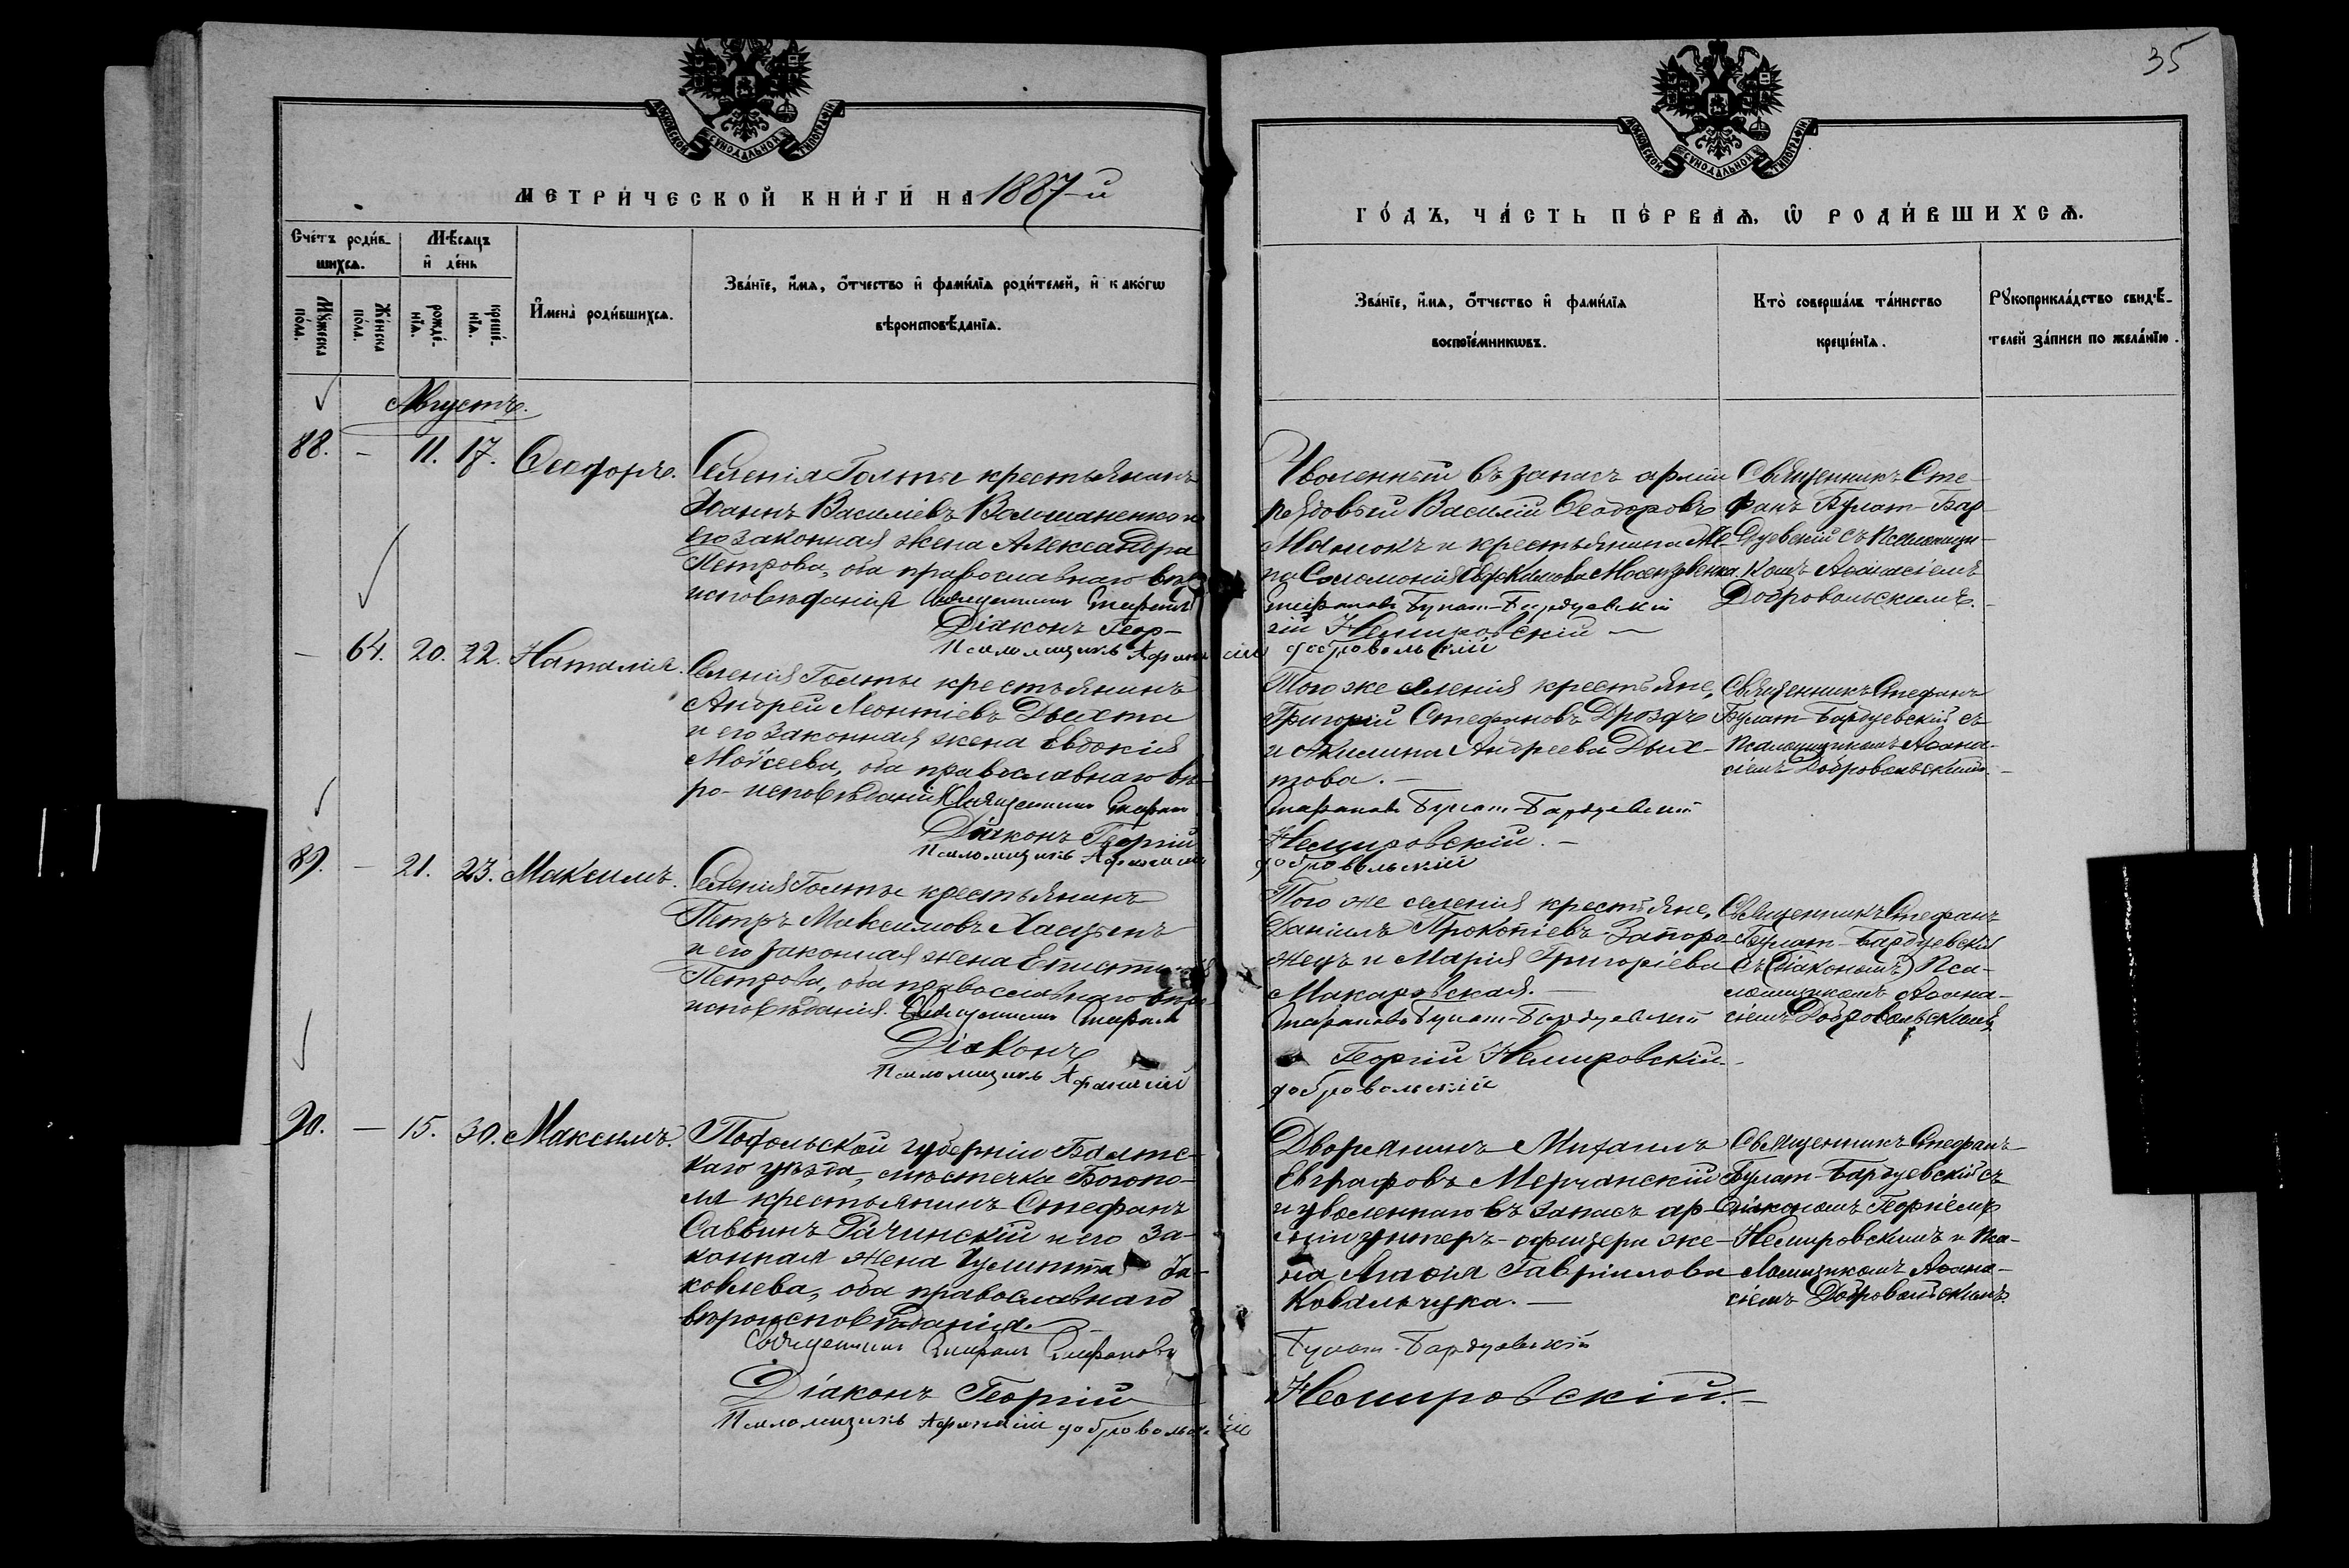 35
МОСКОВСКОЙ СѴНОДАЛЬНОЙ ТИПОГРАФІИ
МОСКОВСКОЙ СѴНОДАЛЬНОЙ ТИПОГРАФІИ
МЕТРИ́ЧЕСКОЙ КНИ́ГИ НА 1887-й
ГО́ДЪ, ЧА́СТЬ ПЕ́РВАѦ, Ѡ РОДИ́ВШИХСѦ.
Сче́тъ роди́в-
шихсѧ.
Мѣ́сѧцъ
и де́нь
Мꙋ́жеска по́ла.
Же́нска по́ла.
рожде́-нїѧ.
креще́-нїѧ.
И҆мена̀ роди́вшихсѧ.
Зва́нїе, и҆́мѧ, ѻ҆́тчество и фами́лїѧ роди́телей, и како́гѡ
вѣроисповѣ́данїѧ.
Зва́нїе, и҆́мѧ, ѻ҆́тчество и фами́лїѧ
воспрїе́мникѡвъ.
Кто̀ соверша́лъ та́инство
креще́нїѧ.
Рꙋкоприкла́дство свидѣ́-
телей за́писи по жела́нїю.
Августъ.
88. - 11. 17. Ѳеодоръ.
Селенія Голты крестьянинъ
Іоаннъ Василіевъ Волошаненко и
его законная жена Александра
Петрова, оба православнаго вѣро
исповѣданія Священникъ Стефанъ
Діаконъ Геор-
Псаломщикъ Афанасій
Уволенный въ запасъ арміи
рядовый Василій Ѳеодоровъ
и крестьянина
Соломонія Евфимова
Стефановъ Булат-Бардуевскій
гій Немировскій
добровольскій
Священникъ Сте-
фанъ Булат-Бар-
дуевскій съ псаломщи-
комъ Аѳанасіемъ
Добровольскимъ.
- 64. 20. 22. Наталія.
Селенія Голты крестьянинъ
Андрей Леонтіевъ Дыхта
и его законная жена Евдокія
Моѵсеева, оба православнаго вѣ-
ро-исповѣданія Священникъ Стефанъ
Діаконъ Георгій
Псаломщикъ Афанасій
Того же селенія крестьяне,
Григорій Стефановъ Дроздъ
и Акилина Андреева Дых-
това.
Стефановъ Булат-Бардуевскій
Немировскій.
добровольскій
Священникъ Стефанъ
Булат-Бардуевскій съ
псаломщикомъ Аѳана-
сіемъ Добровольскимъ.
89. - 21. 23. Максимъ.
Селенія Голты крестьянинъ
Петръ Максимовъ
и его законная жена
Петрова, оба православнаго вѣро
исповѣданія. Священникъ Стефанъ
Діаконъ
Псаломщикъ Афанасій
Того же селенія крестьяне,
Даніилъ Прокопіевъ Запоро-
жецъ и Марія Григоріева
Макаровская.
Стефановъ Булат-Бардуевскій
Георгій Немировскій
добровольскій
Священникъ Стефанъ
Булат-Бардуевскій
съ (діакономъ) Пса-
ломщикомъ Аѳана-
сіемъ Добровольскимъ
90. - 15. 30. Максимъ.
Подольской губерніи Балтс-
каго уѣзда, мѣстечка Богопо-
ля крестьянинъ Стефанъ
Саввинъ Рачинскій и его за-
конная жена Іулитта Іа-
ковлева, оба православнаго
вѣроисповѣданія.
Священникъ Стефанъ Стефановъ
Діаконъ Георгій
Псаломщикъ Афанасій добровольскій
Дворянинъ Михаилъ
Евграфовъ Мерчанскій
и уволеннаго въ запасъ ар-
міи унтеръ-офицера же-
на Гавріилова
Ковальчука.
Булат-Бардуевскій
Немировскій.
Священникъ Стефанъ
Булат-Бардуевскій съ
діакономъ Георгіемъ
Немировскимъ и пса-
ломщикомъ Аѳана-
сіемъ Добровольскимъ.